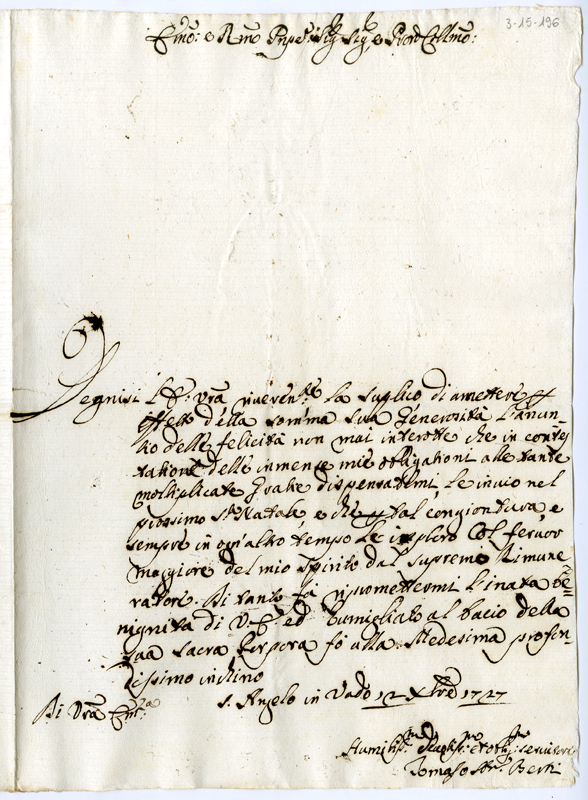 3-15-196
Em̃o: e Rm̃o Pnpe: Sig Sig, e Pron Collmo:
Degnisi L'E: Vrã riverente la suplico di ametere p
effetto della som̃a sua Generosità l'anun-
tio delle felicità non mai interotte che in contes
tatione delle inmense mie obligationi alle tante
moltiplicate Gratie dispensatemi, le invio nel
prossimo Sto Natale, e che p tal congiontura, e
sempre in ogn'altro tempo Le imploro Col fervor
maggiore del mio Spirito dal supremo Rimune
ratore. Di tanto fà ripromettermi l'inata be-
nignità di V: E: ed humigliato al bacio della
sua sacra Porpora fò alla Medesima profon-
dissimo inchino
S. Angelo in Vado 12 Xbre 1727
Di Vrã Emza
Humiliss. et servitore
Tomaso Berti